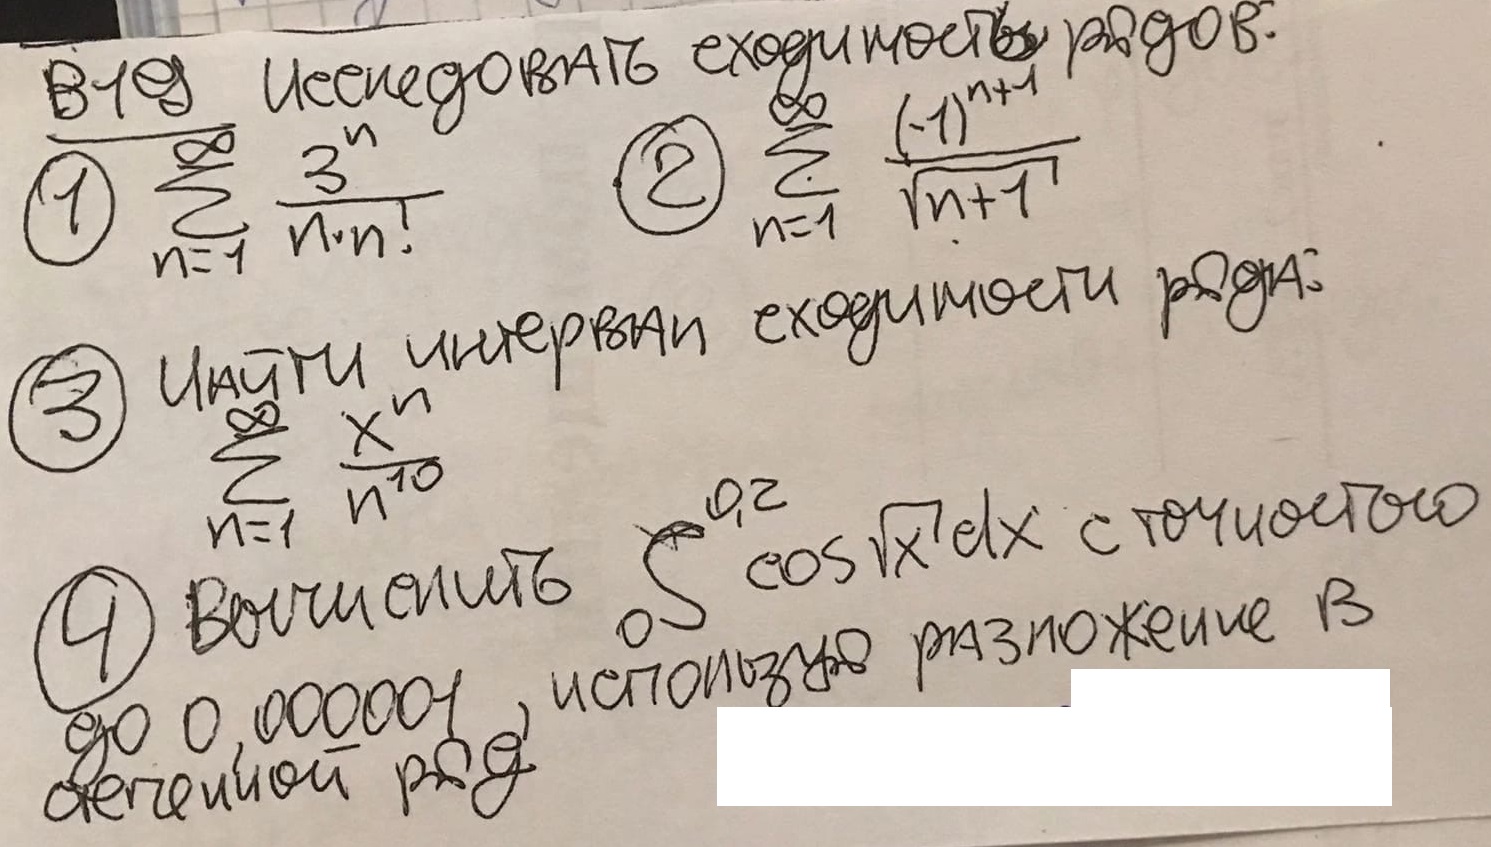 В19 Исследовать сходимость рядов:
① \sum_{n=1}^{\infty} \frac{3^n}{n \cdot n!} ② \sum_{n=1}^{\infty} \frac{(-1)^{n+1}}{\sqrt{n+1}}
③ Найти интервал сходимости ряда:
\sum_{n=1}^{\infty} \frac{x^n}{n^{10}}
④ Вычислить \int_0^{0,2} cos\sqrt{x} dx с точностью
до 0,000001, используя разложение в
степенной ряд